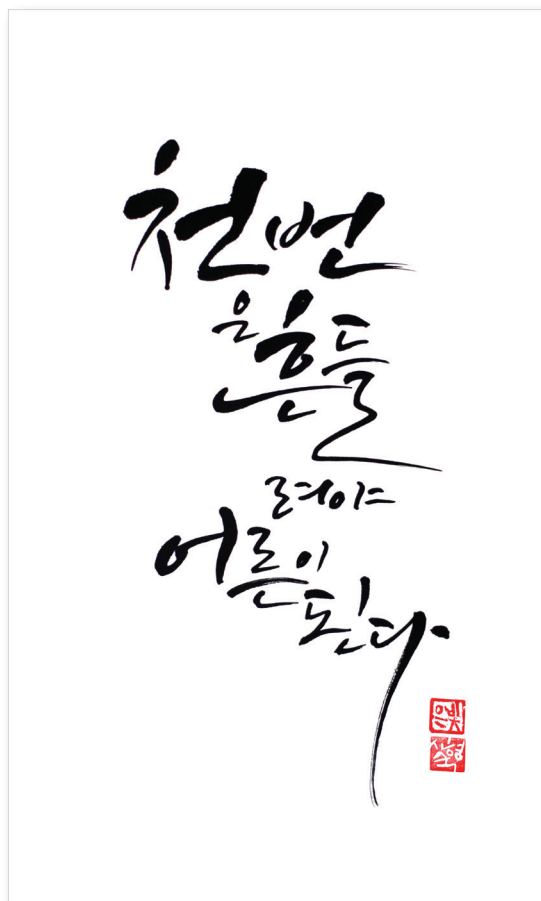 천번
은흔들
려야
어른이
된다